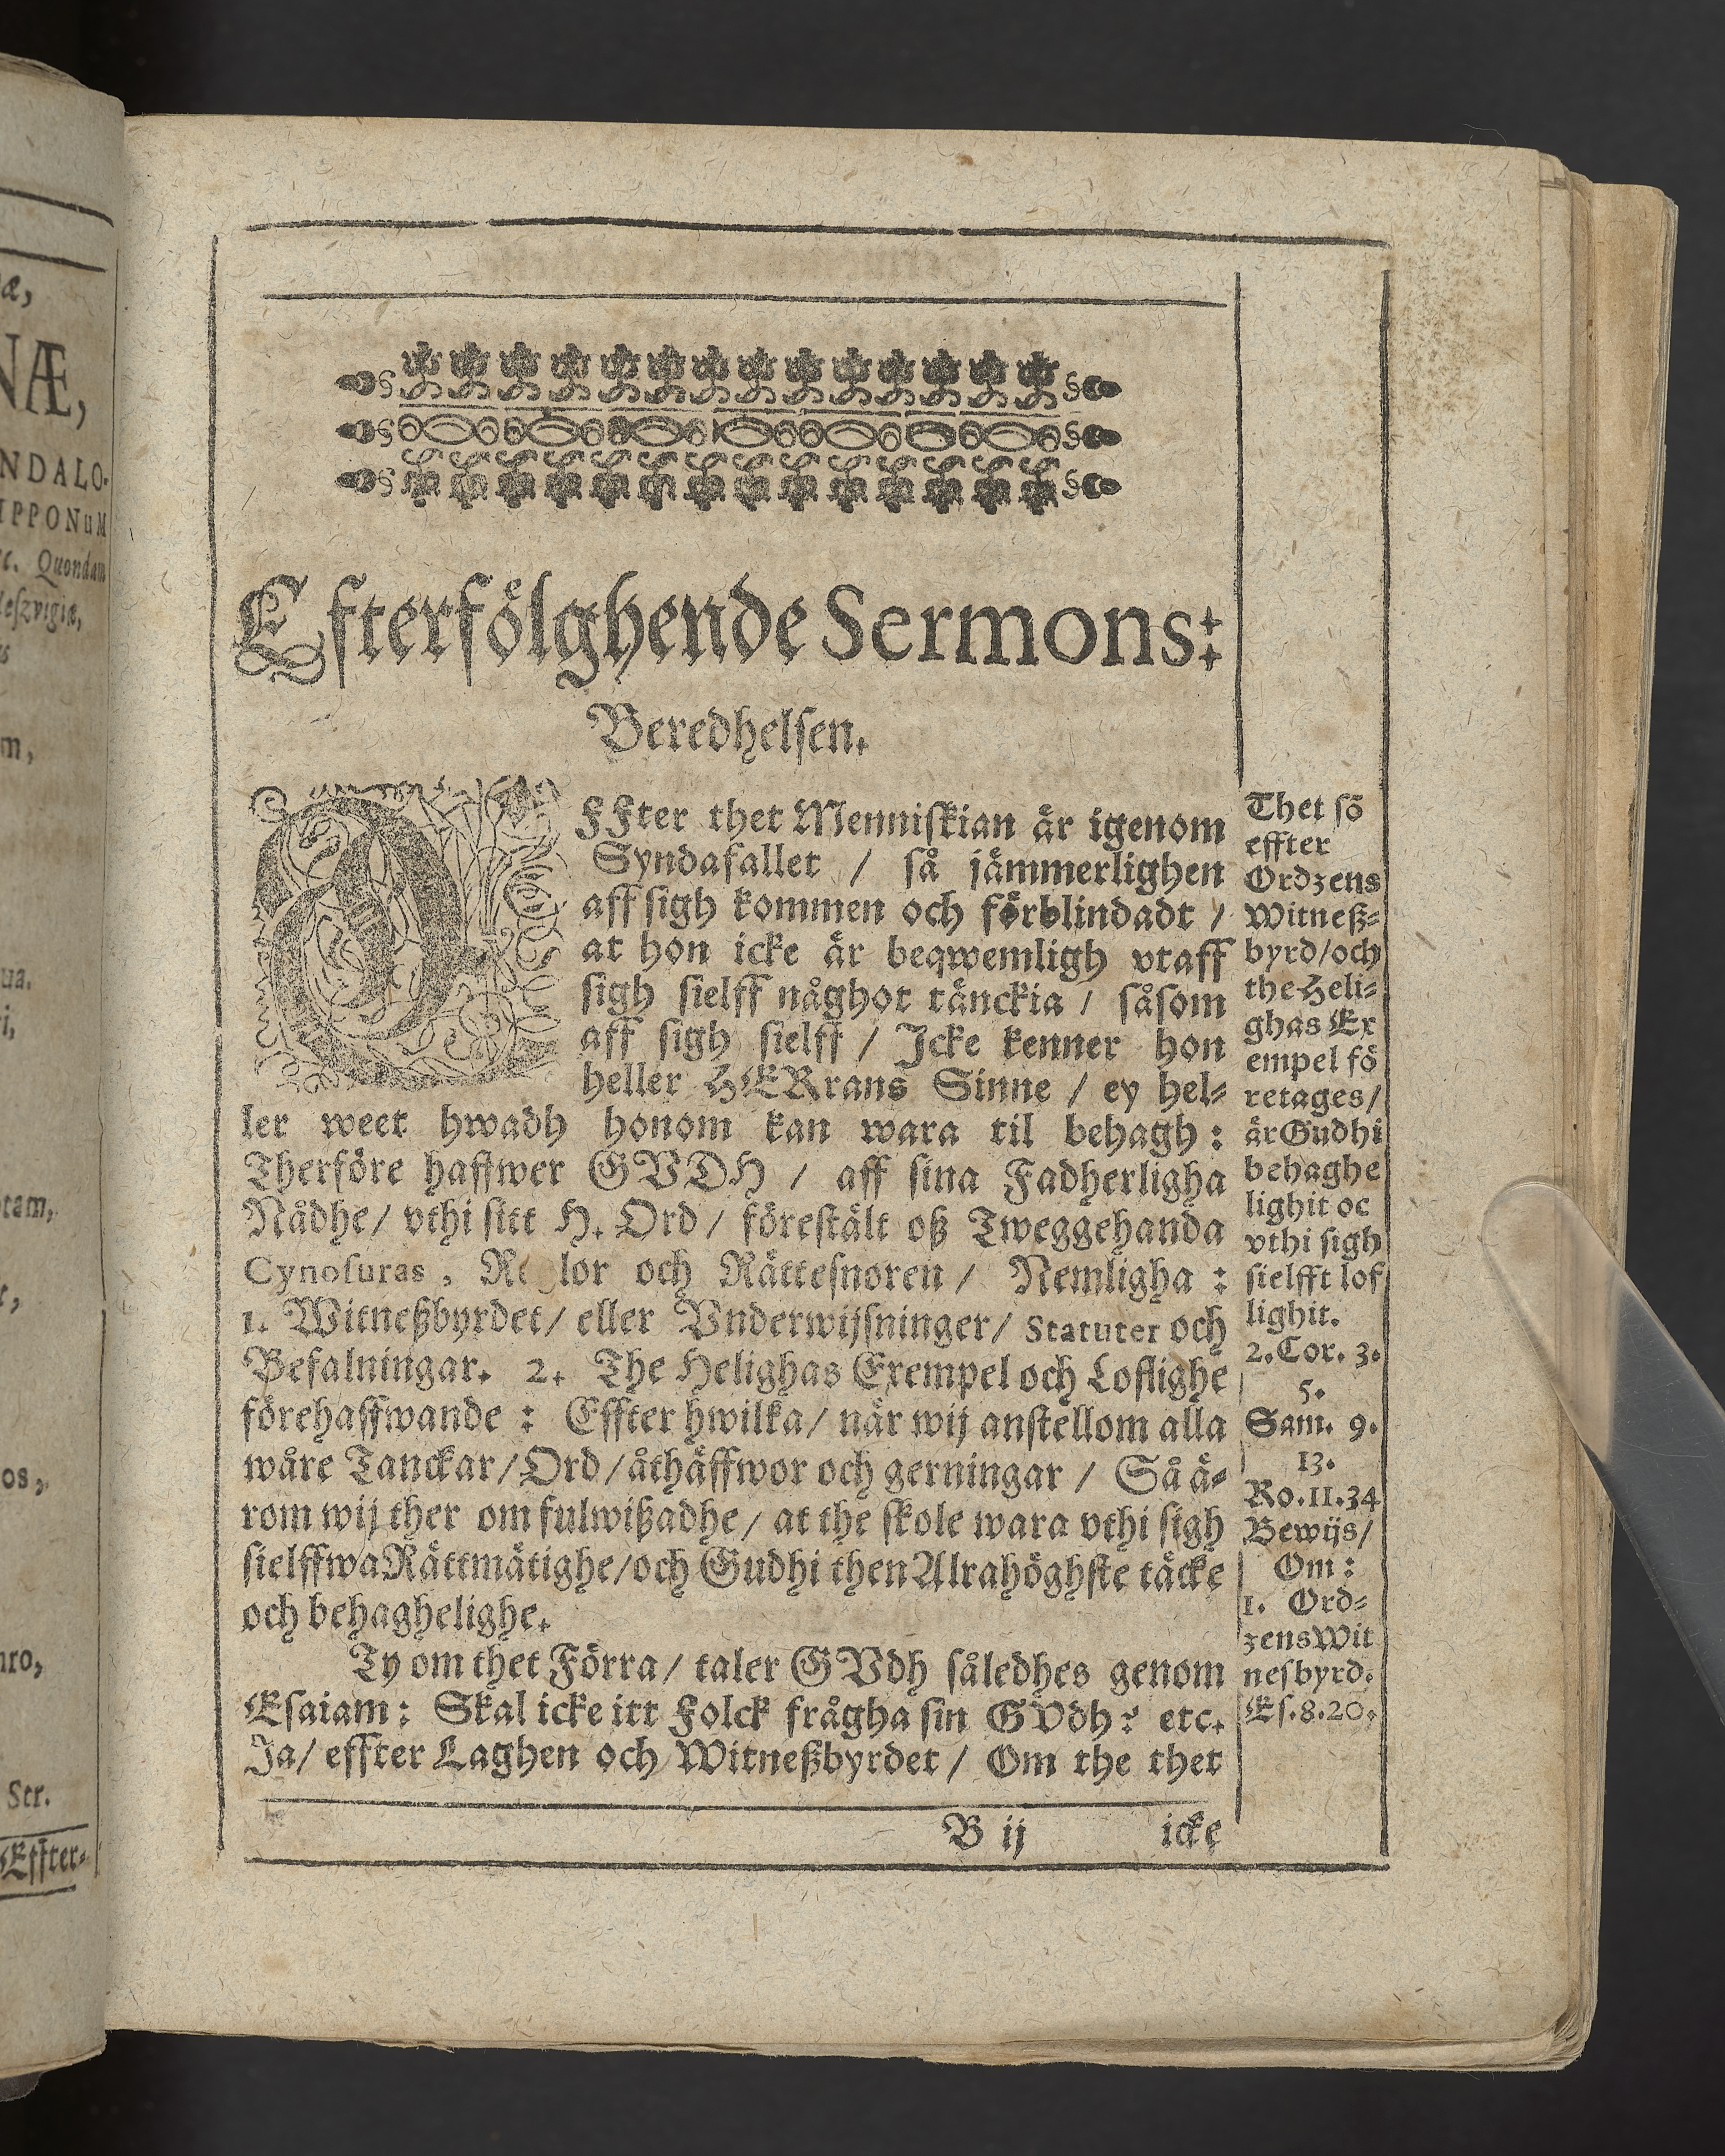 Efterfölghende Sermons:
Beredhelsen.
EFFter thet Menniskian är igenom
Syndafallet / så jämmerlighen
aff sigh kommen och förblindadt /
at hon icke är beqwemligh vtaff
sigh sielff någhot tänckia / såsom
aff sigh sielff / Icke kenner hon
heller HERrans Sinne / ey hel-
ler weet hwadh honom kan wara til behagh:
Therföre haffwer GVDH / aff sina Fadherligha
Nådhe / vthi sitt H. Ord / förestält oß Tweggehanda
Cynosuras, Re lor och Rättesnören / Nemligha:
1. Witneßbyrdet / eller Vnderwijsninger / Statuter och
Befalningar. 2. The Helighas Exempel och Loflighe
förehaffwande: Effter hwilka / när wij anstellom alla
wåre Tanckar / Ord / åthäffwor och gerningar / Så ä-
rom wij ther om fulwißadhe / at the skole wara vthi sigh
sielffwa Rättmätighe / och Gudhi then Alrahöghste täcke
och behaghelighe.
Ty om thet Förra / taler GVdh såledhes genom
Esaiam: Skal icke itt Folck frågha sin GVdh? etc.
Ja / effter Laghen och Witneßbyrdet / Om the thet
B ij icke
Thet sō
effter
Ordzens
Witneß-
byrd / och
the Heli-
ghas Ex
empel fö
retages /
är Gudhi
behaghe
lighit oc
vthi sigh
sielfft lof
lighit.
2. Cor. 3.
5.
Sam. 9.
13.
Ro. 11. 34
Bewijs /
Om:
1. Ord-
zens Wit
nesbyrd.
Es. 8. 20.
NDALO-
IPPONuM
Quondam
Scr.
Effter-